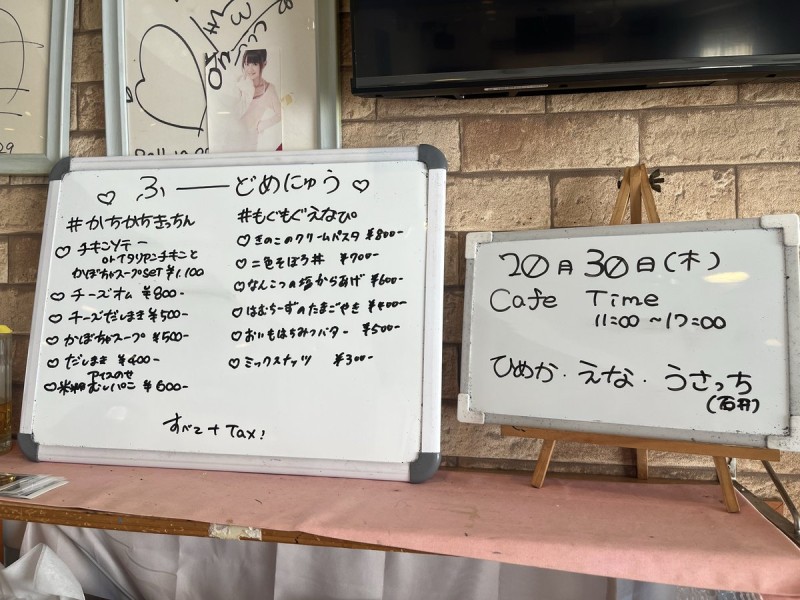 ふーどめにゅう
#かちかちきっちん
チキンソテー
onイタリアンチキンと
かぼちゃスープSET ¥1,100
チーズオム ¥800-
チーズだしまき ¥500-
かぼちゃスープ ¥500-
だしまき ¥400-
アイスのせ
米粉むしパン ¥600-
#もぐもぐえなぴ。
きのこのクリームパスタ ¥800-
二色そぼろ丼 ¥700-
なんこつの塩からあげ ¥600-
はむちーずのたまごやき ¥400-
おいもはちみつバター ¥500-
ミックスナッツ ¥300-
すべて + Tax!
10月30日(木)
Cafe Time
11:00 ~17:00
ひめか・えな・うさっち
(石井)